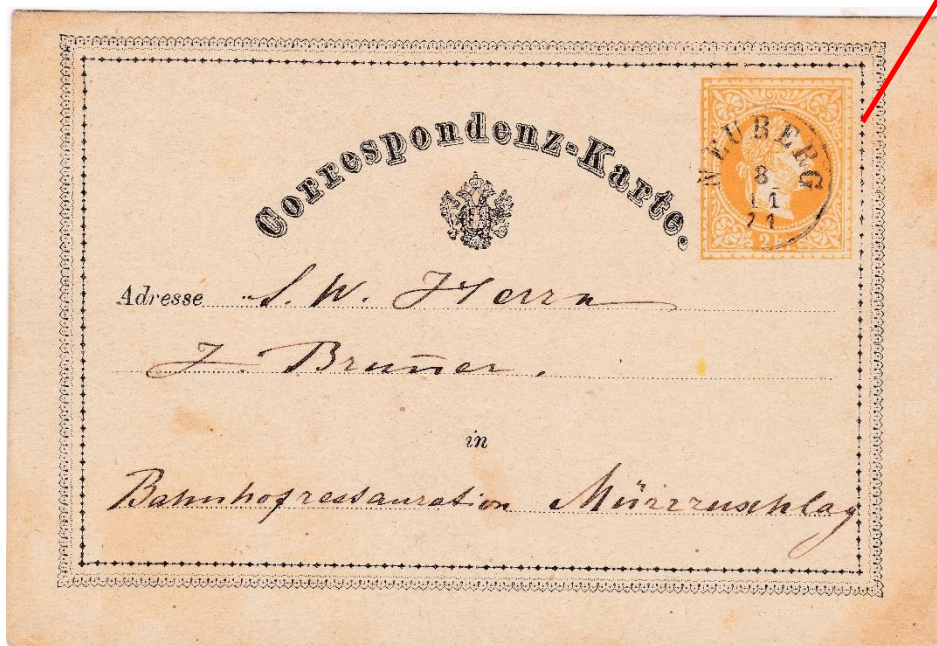 Correspondenz-Karte.
NEUBERG
8
11
71
2
Adresse S. W. Herrn
J. Bruñer.
in
Bahnhofrestauration Mürzzuschlag